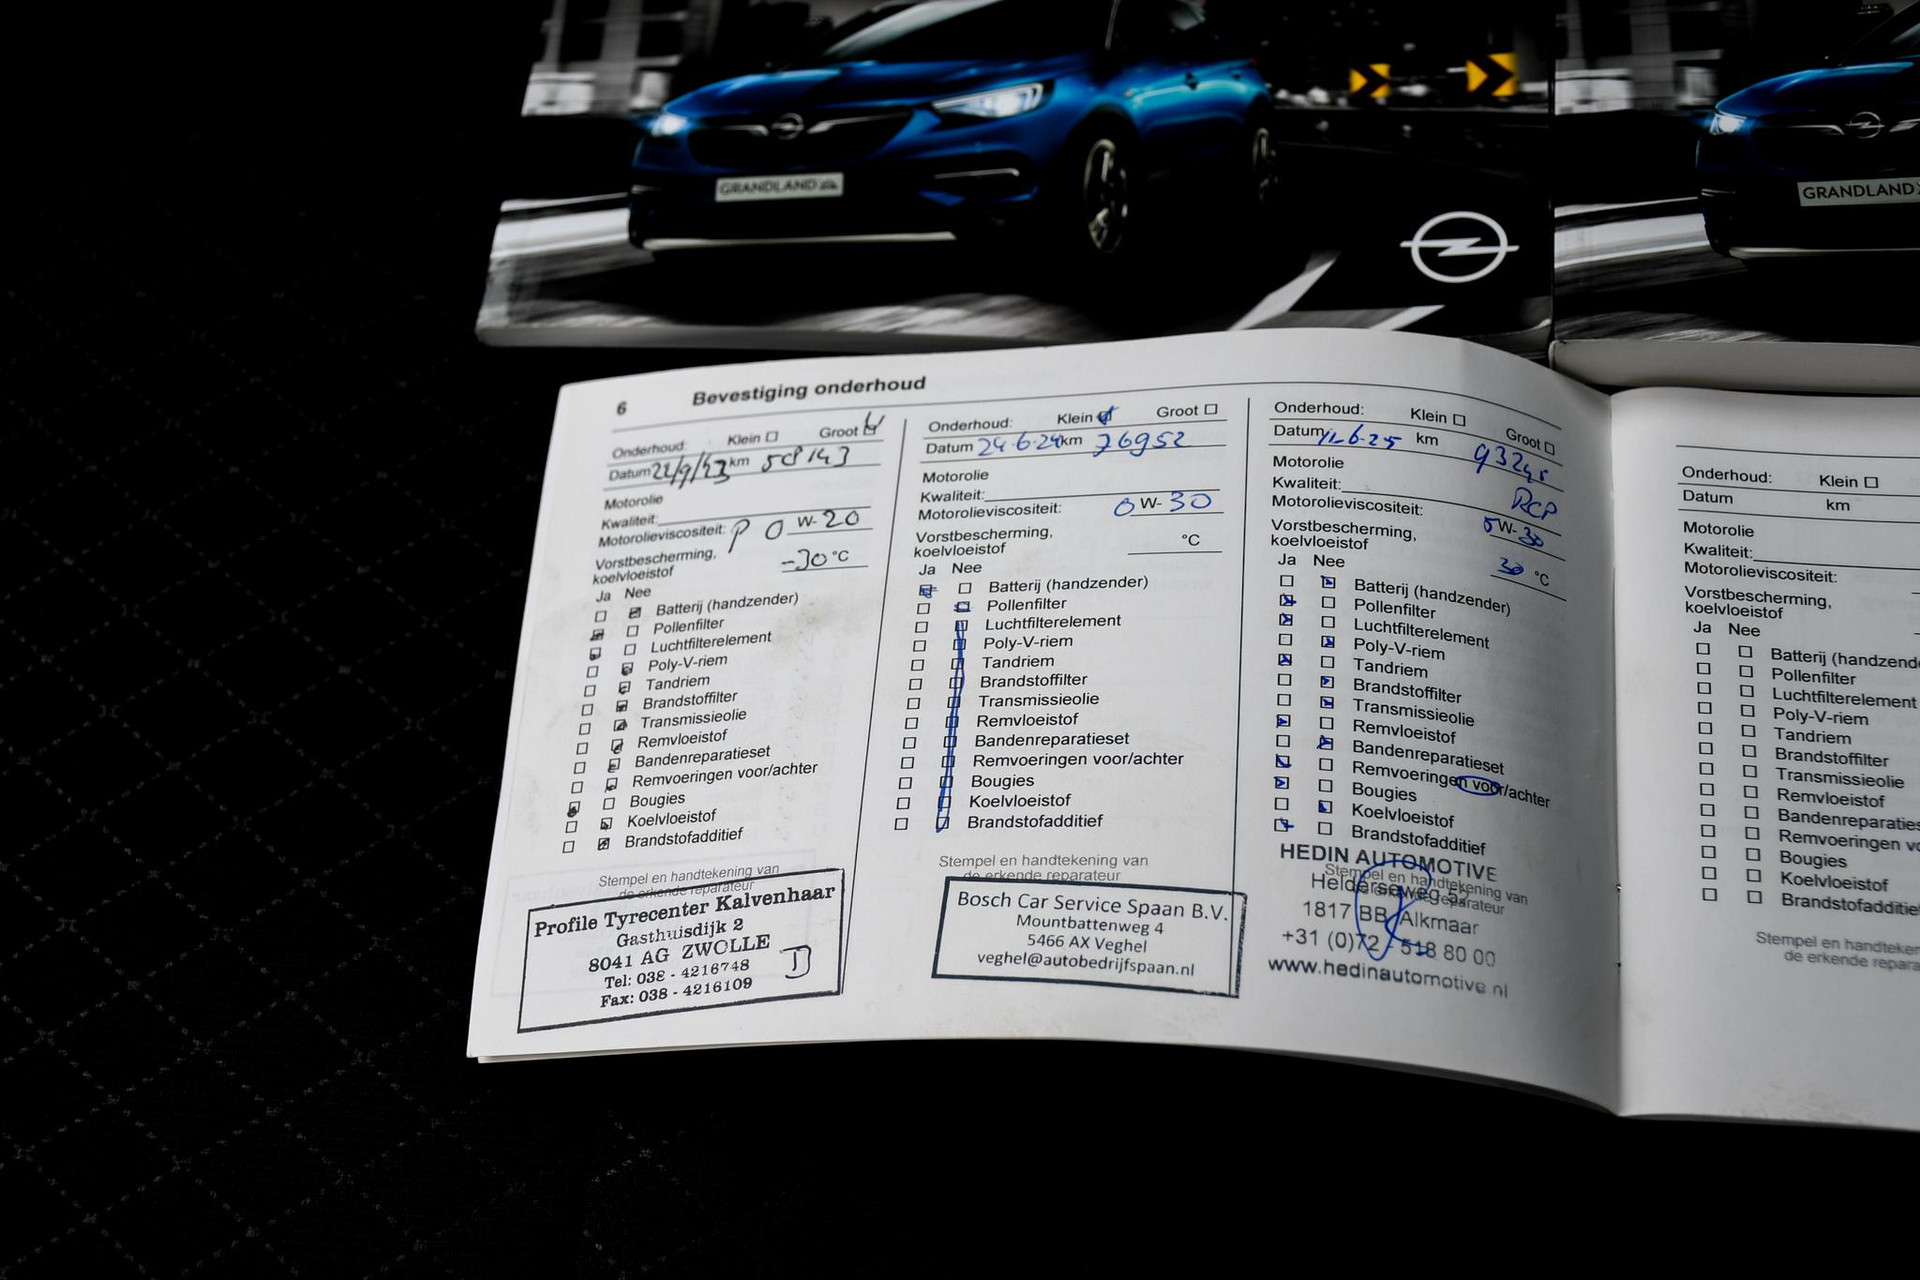 GRANDLAND X
GRANDLAND X
6 Bevestiging onderhoud
Onderhoud: Klein ☐ Groot ☑
Datum km 58143
Motorolie
Kwaliteit:
Motorolieviscositeit: P 0 W- 20
Vorstbescherming,
koelvloeistof -30 °C
Ja Nee
Batterij (handzender)
Pollenfilter
Luchtfilterelement
Poly-V-riem
Tandriem
Brandstoffilter
Transmissieolie
Remvloeistof
Bandenreparatieset
Remvoeringen voor/achter
Bougies
Koelvloeistof
Brandstofadditief
Stempel en handtekening van
de erkende reparateur
Profile Tyrecenter Kalvenhaar
Gasthuisdijk 2
8041 AG ZWOLLE
Tel: 038 - 4216748
Fax: 038 - 4216109
D
Onderhoud: Klein ☑ Groot ☐
Datum 24-6-24 km 76952
Motorolie
Kwaliteit:
Motorolieviscositeit: 0 W- 30
Vorstbescherming,
koelvloeistof °C
Ja Nee
Batterij (handzender)
Pollenfilter
Luchtfilterelement
Poly-V-riem
Tandriem
Brandstoffilter
Transmissieolie
Remvloeistof
Bandenreparatieset
Remvoeringen voor/achter
Bougies
Koelvloeistof
Brandstofadditief
Stempel en handtekening van
de erkende reparateur
Bosch Car Service Spaan B.V.
Mountbattenweg 4
5466 AX Veghel
veghel@autobedrijfspaan.nl
Onderhoud: Klein ☐ Groot ☐
Datum km
Motorolie
Kwaliteit: RCP
Motorolieviscositeit: 5 W- 30
Vorstbescherming,
koelvloeistof 30 °C
Ja Nee
Batterij (handzender)
Pollenfilter
Luchtfilterelement
Poly-V-riem
Tandriem
Brandstoffilter
Transmissieolie
Remvloeistof
Bandenreparatieset
Remvoeringen voor/achter
Bougies
Koelvloeistof
Brandstofadditief
HEDIN AUTOMOTIVE
Stempel en handtekening van
Helderseweg 52
reparateur
1817 BB Alkmaar
+31 (0)72 - 518 80 00
www.hedinautomotive.nl
Onderhoud: Klein ☐
Datum km
Motorolie
Kwaliteit:
Motorolieviscositeit:
Vorstbescherming,
koelvloeistof
Ja Nee
Batterij (handzende
Pollenfilter
Luchtfilterelement
Poly-V-riem
Tandriem
Brandstoffilter
Transmissieolie
Remvloeistof
Bandenreparaties
Remvoeringen vo
Bougies
Koelvloeistof
Brandstofadditie
Stempel en handteken
de erkende repara